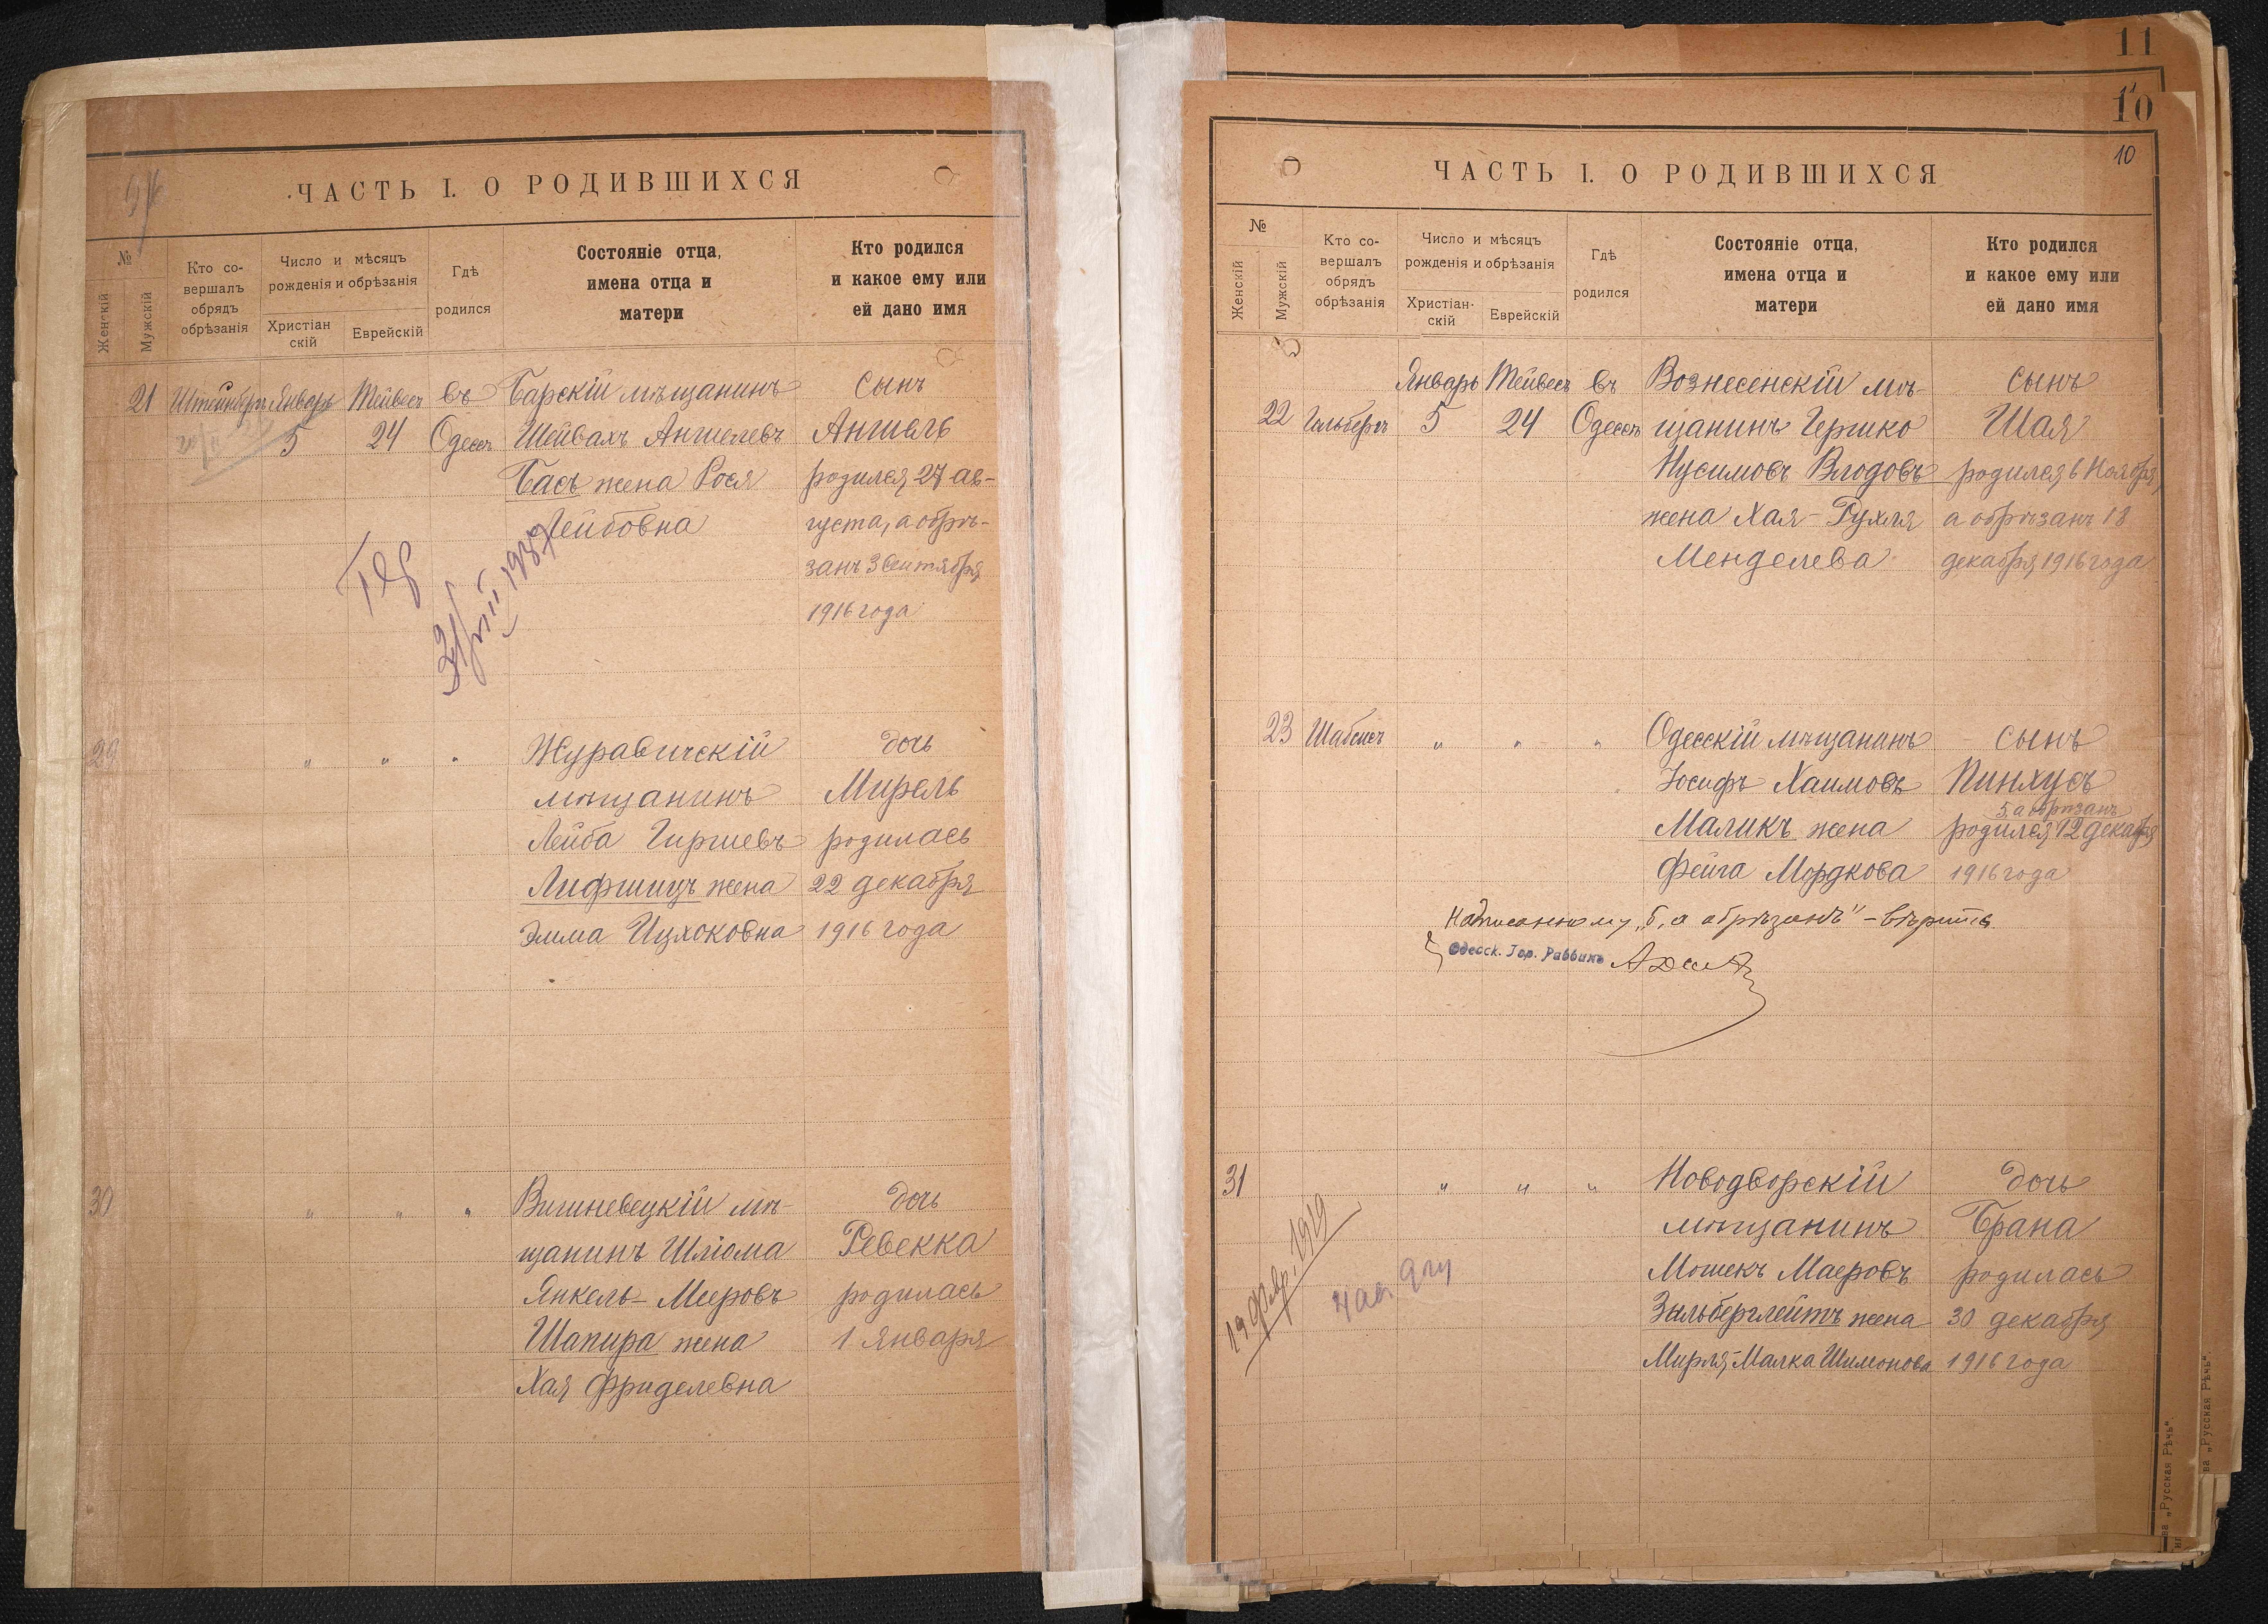 ЧАСТЬ I. О РОДИВШИХСЯ
№
Женскій
Мужскій
Кто со-
вершалъ
обрядъ
обрѣзанія
Число и мѣсяцъ
рожденія и обрѣзанія
Христіан
скій
Еврейскій
Гдѣ
родился
Состояніе отца,
имена отца и
матери
Кто родился
и какое ему или
ей дано имя
21 Январь Тейвесъ въ Барскій мѣщанинъ сынъ
5 24 Одессѣ Шейвахъ Аншелевъ Аншель
Басъ жена Рося родился 27 ав-
Лейбовна густа, а обрѣ-
занъ 3 Сентября
1916 года
29 " " " Журавичскій дочь
мѣщанинъ Мирель
Лейба Гиршевъ родилась
Лифшицъ жена 22 декабря
Эмма Ицхоковна 1916 года
30 " " " Вишневецкій мѣ- дочь
щанинъ Шліома Ревекка
Янкель-Мееровъ родилась
Шапира жена 1 Января
Хая Фриделевна
11
10
10
ЧАСТЬ I. О РОДИВШИХСЯ
№
Женскій
Мужскій
Кто со-
вершалъ
обрядъ
обрѣзанія
Число и мѣсяцъ
рожденія и обрѣзанія
Христіан-
скій
Еврейскій
Гдѣ
родился
Состояніе отца,
имена отца и
матери
Кто родился
и какое ему или
ей дано имя
Январь Тейвесъ въ Вознесенскій мѣ- сынъ
22 5 24 Одессѣ щанинъ Гершко Шая
Нусимовъ Влодовъ родился 6 Ноября,
жена Хая-Рухля а обрѣзанъ 18
Менделева декабря 1916 года
23 Шабсисъ " " " Одесскій мѣщанинъ сынъ
Іосифъ Хаимовъ Пинхусъ
5, а обрѣзанъ
Маликъ жена родился 12 декабря
Фейга Мордкова 1916 года
Надписанному „5, а обрѣзанъ" – вѣрить
Одесск. Гор. Раввинъ
31 " " " Новодворскій дочь
мѣщанинъ Брана
Мошекъ Маеровъ родилась
Зильберглейтъ жена 30 декабря
Мирля-Малка Шимонова 1916 года
19 февр. 1919
ва „Русская Рѣчь".
ва „Русская Рѣчь".